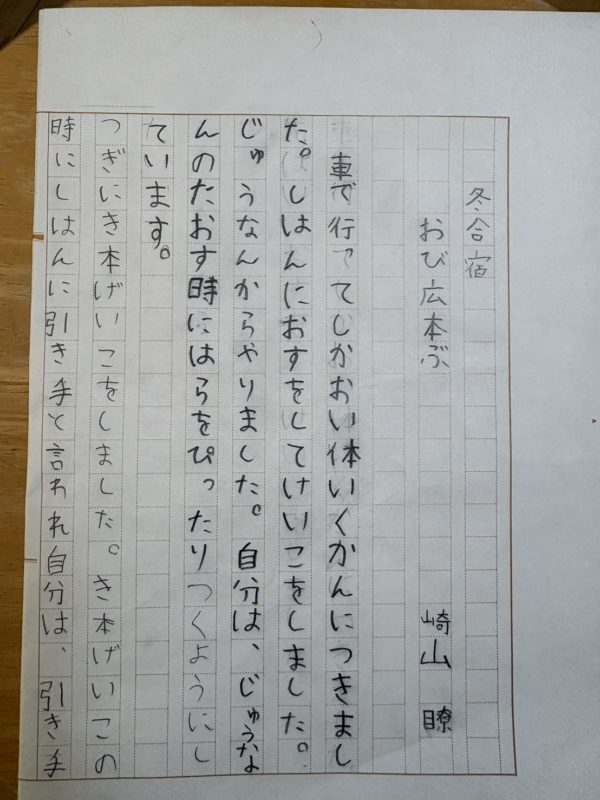 冬合宿
おび広本ぶ
崎山 瞭
車で行ってしかおい体いくかんにつきまし
た。しはんにおすをしてけいこをしました。
じゅうなんからやりました。自分は、じゅうな
んのたおす時にはらをぴったりつくようにし
ています。
つぎにき本げいこをしました。き本げいこの
時にしはんに引き手と言われ自分は、引き手